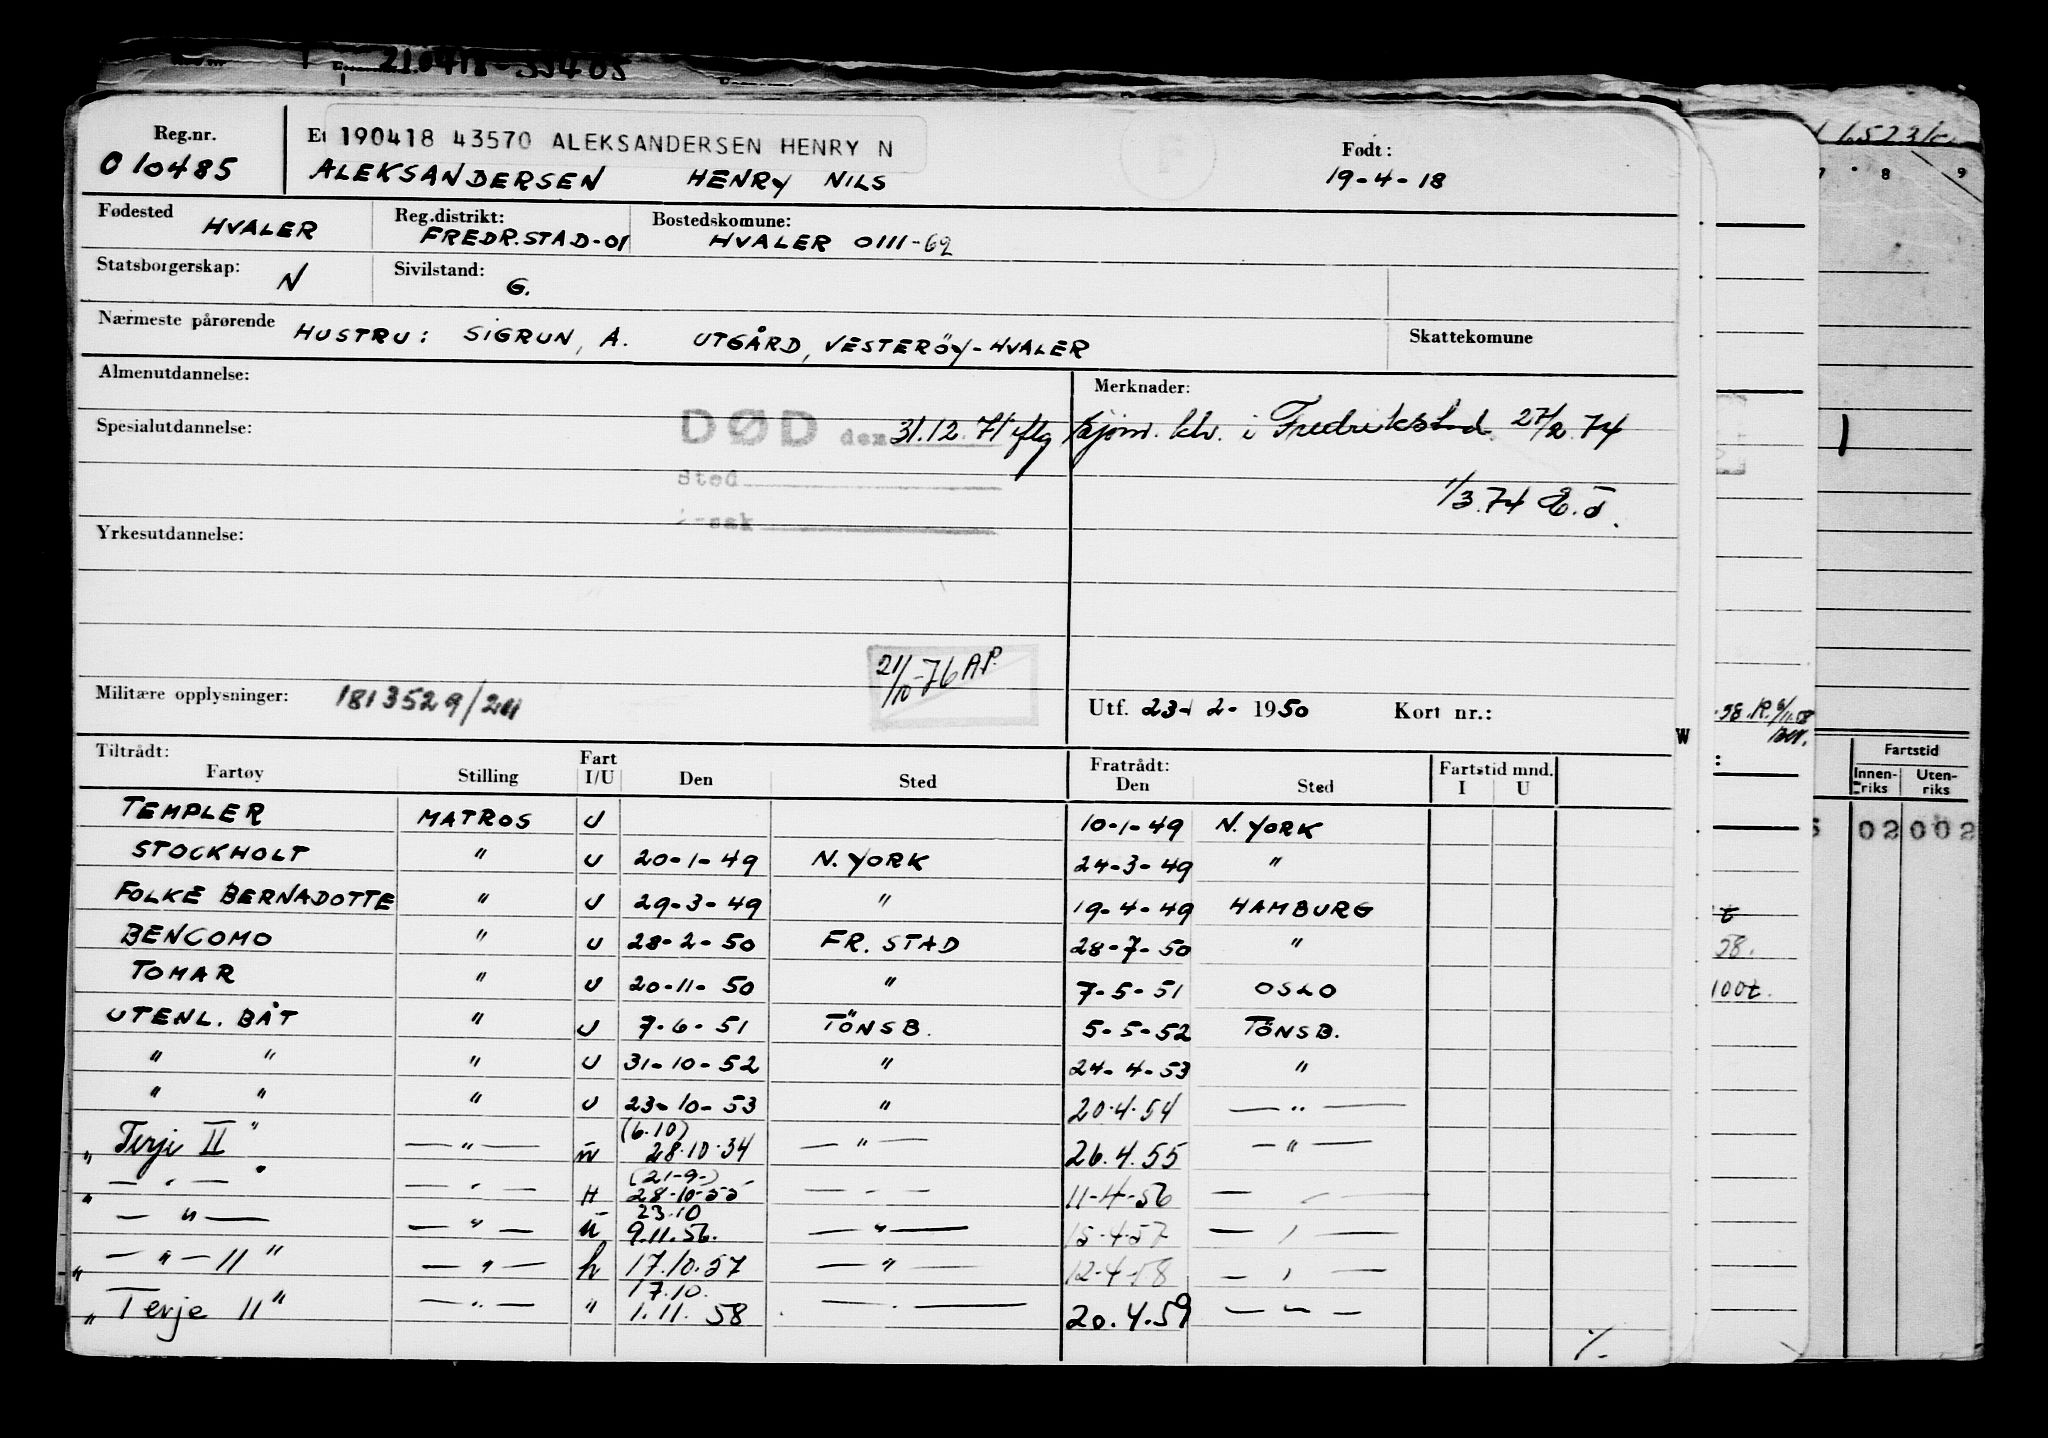 210418-33405
Reg.nr. Et 190418 43570 ALEKSANDERSEN HENRY N Født:
010485 ALEKSANDERSEN HENRY NILS 19-4-18
Fødested HVALER Reg.distrikt: FREDR.STAD-01 Bostedskomune: HVALER 0111-62
Statsborgerskap: N Sivilstand: G.
Nærmeste pårørende HUSTRU: SIGRUN, A. UTGÅRD, VESTERÖY-HVALER Skattekomune
Almenutdannelse: Merknader:
Spesialutdannelse: DØD den 31.12.71 flg kjønn. klv. i Fredrikstad 27/2.74
Sted
1/3.74 E.J.
Yrkesutdannelse:
21/10-76 AP.
Militære opplysninger: 1813529/241 Utf. 23-2-1950 Kort nr.:
Tiltrådt: Fart Fratrådt: Fartstid mnd.
Fartøy Stilling I/U Den Sted Den Sted I U
TEMPLER MATROS U 10-1-49 N. YORK
STOCKHOLT " U 20-1-49 N. YORK 24-3-49 "
FOLKE BERNADOTTE " U 29-3-49 " 19-4-49 HAMBURG
BENCOMO " U 28-2-50 FR. STAD 28-7-50 "
TOMAR " U 20-11-50 " 7-5-51 OSLO
UTENL. BÅT " U 7-6-51 TÖNSB. 5-5-52 TÖNSB.
" " " U 31-10-52 " 24-4-53 "
" " " U 23-10-53 " 20.4.54 — " —
(6.10)
" Terje II " — " — u 28.10.34 — " — 26.4.55 — " —
(21-9-)
" — " — " — " — H 28-10-55 — " — 11-4-56 — " —
23.10
— " — — " — u 9.11.56. — " — 15-4-57 — " —
" — " — II " — " — h 17.10.57 — " — 12-4-58 — " —
17.10.
" Terje II " — " — " 1.11.58 — " — 20.4.59 — " —
./.
W
8 9
-58.
100t.
Fartstid
Innen-riks Uten-riks
02 002